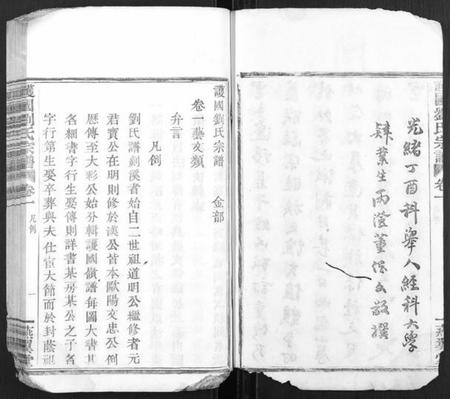 光緒丁酉科舉人經科大學
肄業生兩澄董
敬撰
護國劉氏宗譜
卷一
護國劉氏宗譜 金部
卷一藝文類
弁言
凡例
劉氏譜剡溪者始自二世祖道明公繼修者元
君實公在明則修於漢公皆本歐陽文忠公例
歷傳至大彩公始分輯護國倣譜每圖大書其
名細書字行生娶傳則詳書某房某公之子名
字行第生娶卒葬與夫仕宦大節而於封蔭褒
護國劉氏宗譜
卷一
凡例
一